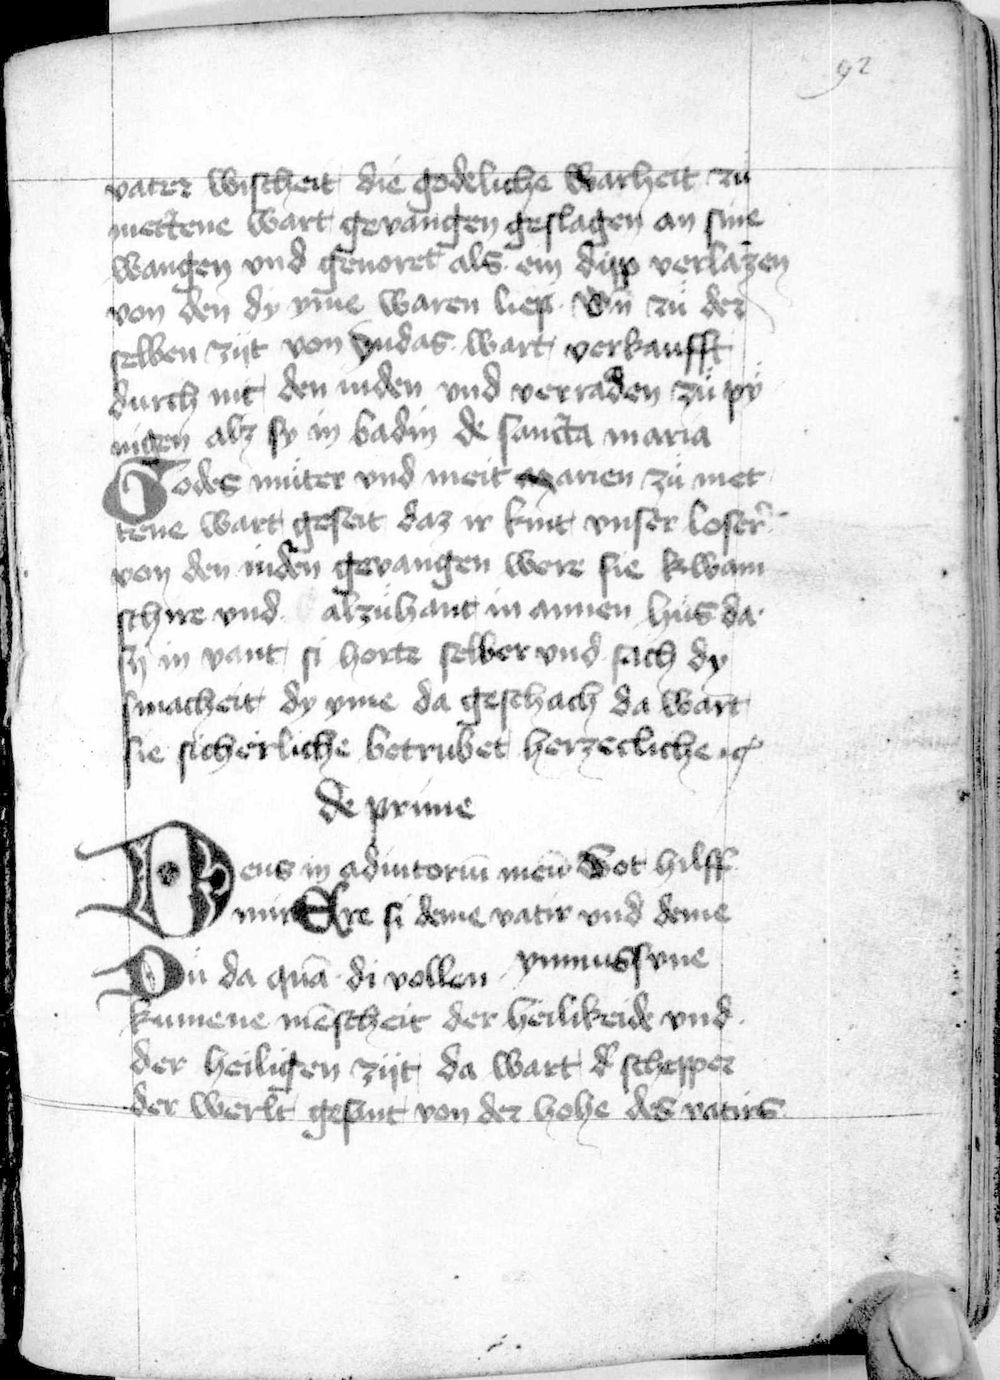 92
vater wischeit die godeliche warheit zu
mettene wart gevangen geslagen an sine
wangen vnd gevoret als ein dipp verlazen
von den dy yme waren liep vn zu der
selben zijt von yudas wart verkaufft
durch nit den iuden vnd verraden zu py
nigen alz sy in badin de sancta maria
Godes muter vnd meit marien zu met
tene wart geseit daz ir kint vnser loser
von den iuden gevangen were sie kwam
schire vnd alzuhant in annen hus da
sy in vant si horte selber vnd sach dy
smacheit dy yme da geschach da wart
sie sicherliche betrubet herzecliche
de prime
Deus in adiutoriū meū Got hilff
mir Ere si deme vatir vnd deme
Du da quā di vollen ymnus sune
kumene mēscheit der heilikeide vnd
der heiligen zijt da wart d' schepper
der werlt gesant von der hohe des vatirs